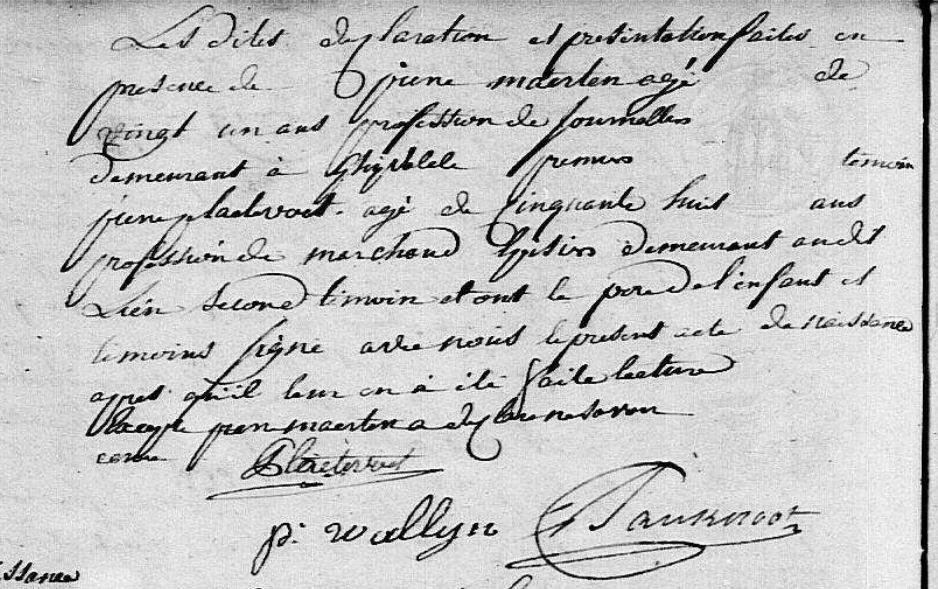 Les dites declaration et presentation faites en
presence de piere maerten agé de
vingt un ans profession de Journallier
demeurant à Ghyvelde premier temoin
piere plaetevoet agé de Cinquante huit ans
profession de marchand demeurant audit
Lieu second temoin et ont le pere de l'enfant et
temoins signé avec nous le present acte de naissance
apres qu'il leur en à été faite lecture
Excepte piere maerten a declare ne savoir
ecrire Plaetevoet
p: wallyn
ssance